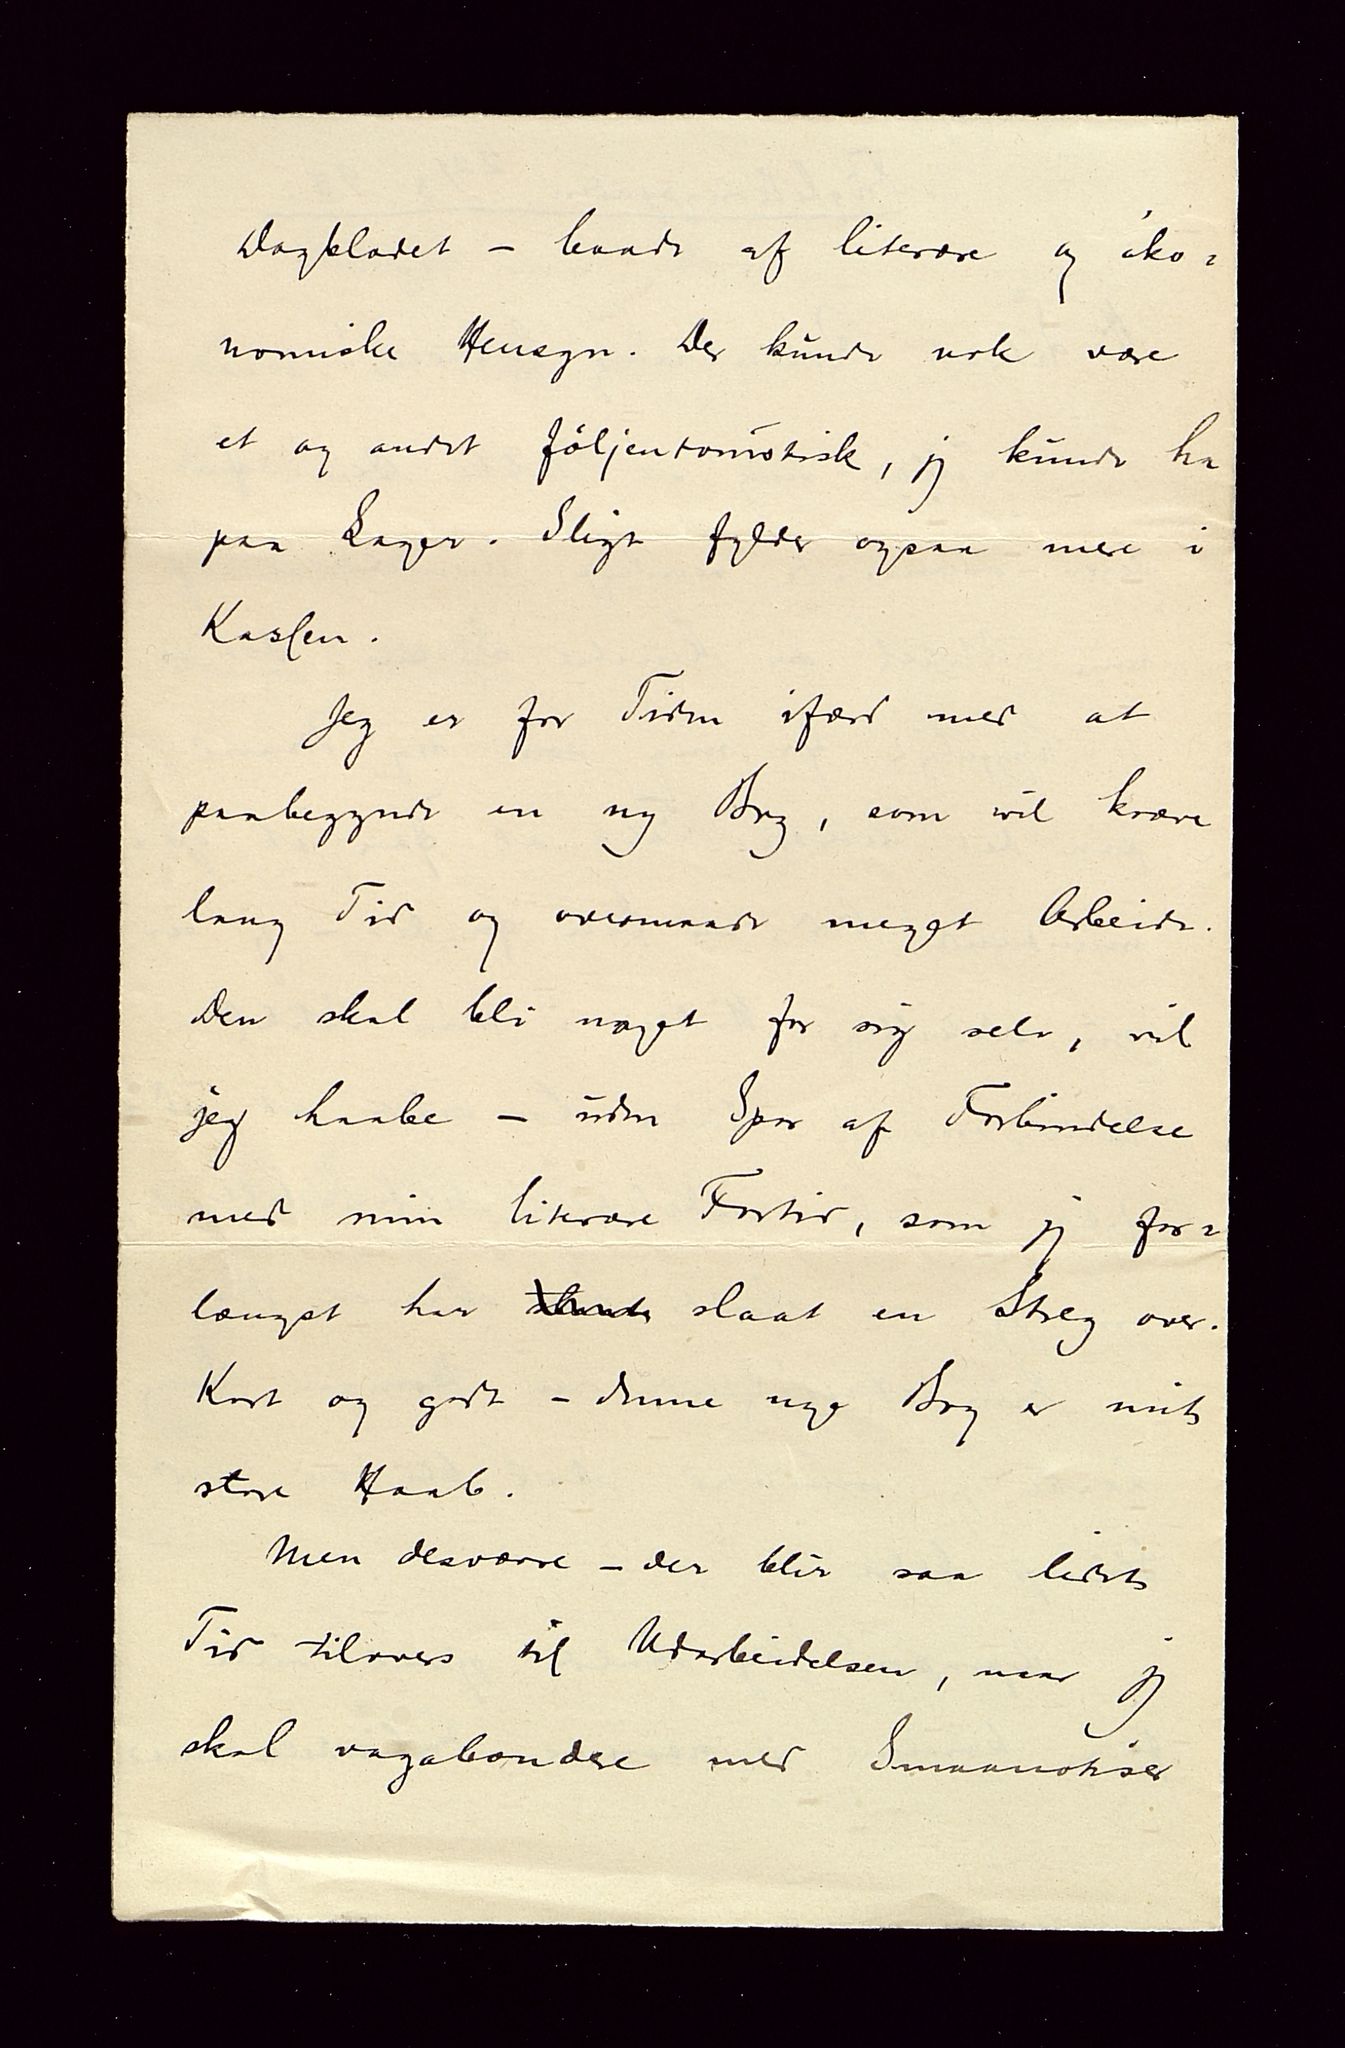 Dagbladet – baade af literære og øko-
nomiske Hensyn. Der kunde nok være
et og andet följentonistisk, jeg kunde ha
paa Lager. Sligt fylder ogsaa mere i
Kassen.
Jeg er for Tiden ifærd med at
paabegynde en ny Bog, som vil kræve
lang Tid og overmaade meget Arbeide.
Den skal bli noget for sig selv, vil
jeg haabe – uden Spor af Forbindelse
med min literære Fortid, som jeg for-
længst har slaat en Streg over.
Kort og godt – denne nye Bog er mit
store Haab.
Men desværre – der blir saa lidet
Tid tilovers til Udarbeidelsen, naar jeg
skal vagabondere med Smaanotiser